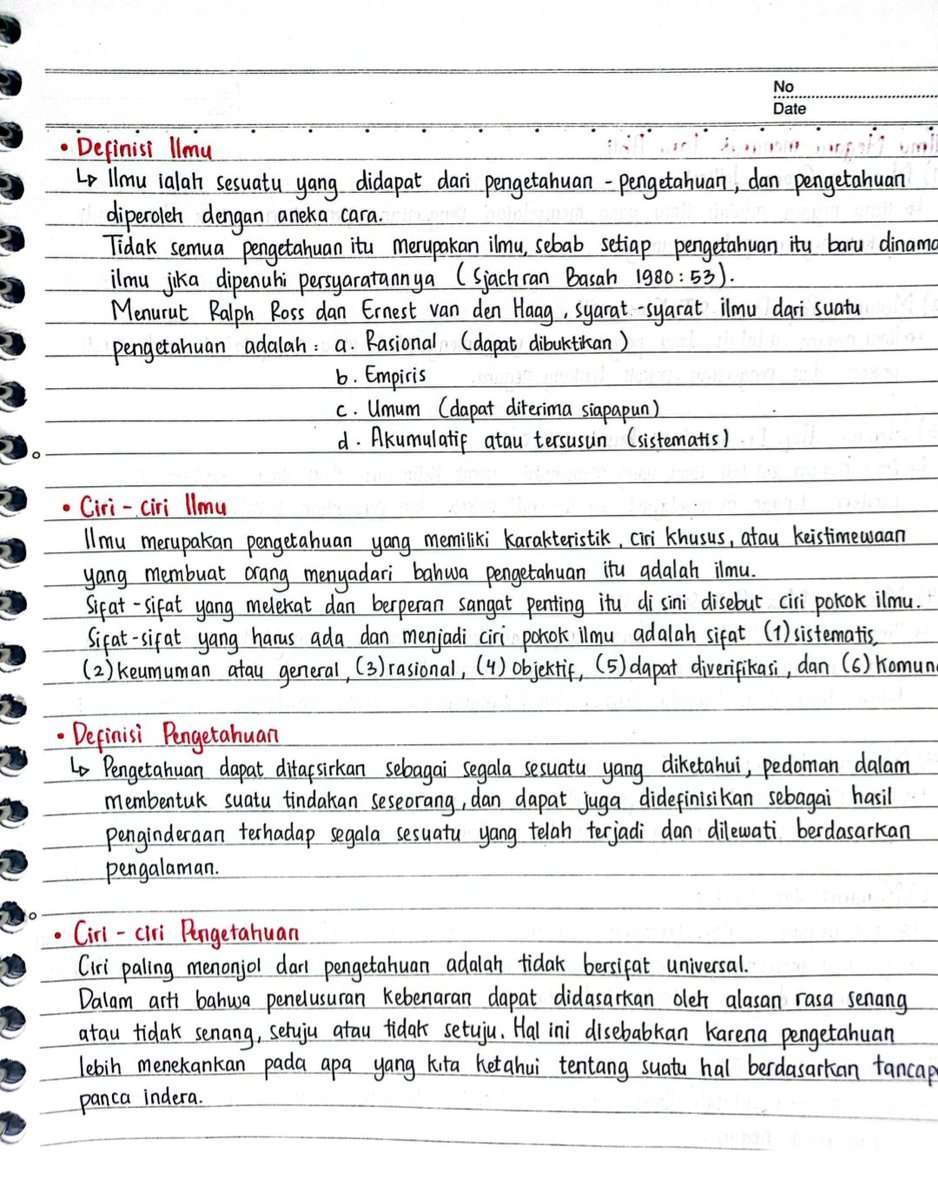 No
Date
• Definisi Ilmu
↳ Ilmu ialah sesuatu yang didapat dari pengetahuan - pengetahuan, dan pengetahuan
diperoleh dengan aneka cara.
Tidak semua pengetahuan itu merupakan ilmu, sebab setiap pengetahuan itu baru dinama
ilmu jika dipenuhi persyaratannya (Sjachran Basah 1980 : 53).
Menurut Ralph Ross dan Ernest van den Haag, syarat-syarat ilmu dari suatu
pengetahuan adalah : a. Rasional (dapat dibuktikan)
b. Empiris
c. Umum (dapat diterima siapapun)
d. Akumulatif atau tersusun (sistematis)
• Ciri - ciri Ilmu
Ilmu merupakan pengetahuan yang memiliki karakteristik, ciri khusus, atau keistimewaan
yang membuat orang menyadari bahwa pengetahuan itu adalah ilmu.
Sifat-sifat yang melekat dan berperan sangat penting itu di sini disebut ciri pokok ilmu.
Sifat-sifat yang harus ada dan menjadi ciri pokok ilmu adalah sifat (1) sistematis,
(2) keumuman atau general, (3) rasional, (4) objektif, (5) dapat diverifikasi, dan (6) komun
• Definisi Pengetahuan
↳ Pengetahuan dapat ditafsirkan sebagai segala sesuatu yang diketahui, pedoman dalam
membentuk suatu tindakan seseorang, dan dapat juga didefinisikan sebagai hasil
penginderaan terhadap segala sesuatu yang telah terjadi dan dilewati berdasarkan
pengalaman.
• Ciri - ciri Pengetahuan
Ciri paling menonjol dari pengetahuan adalah tidak bersifat universal.
Dalam arti bahwa penelusuran kebenaran dapat didasarkan oleh alasan rasa senang
atau tidak senang, setuju atau tidak setuju. Hal ini disebabkan karena pengetahuan
lebih menekankan pada apa yang kita ketahui tentang suatu hal berdasarkan tancap
panca indera.